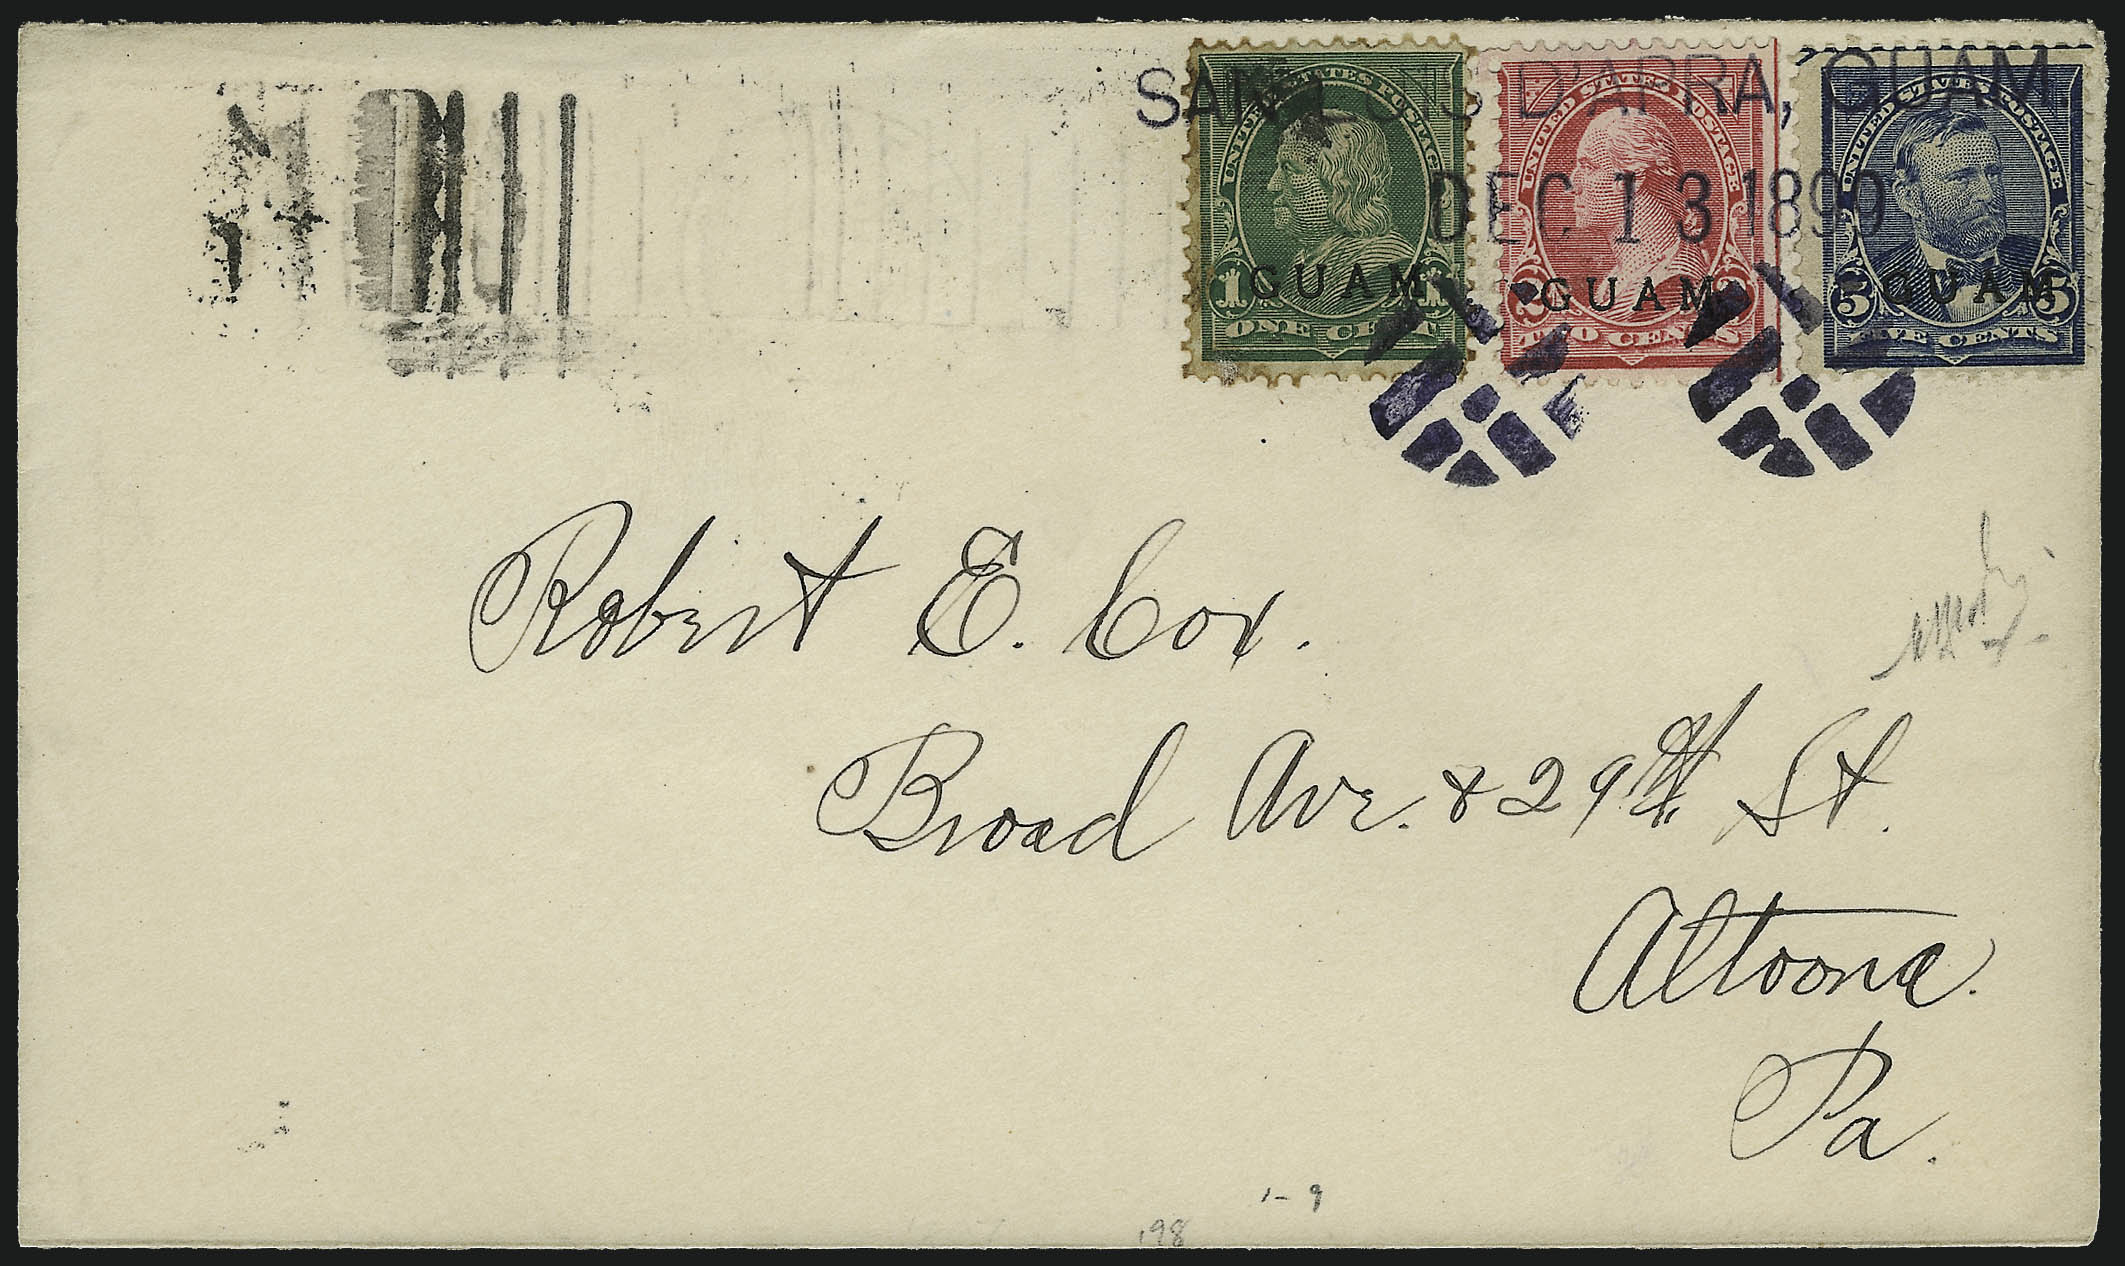 SAN LUIS D'APRA, GUAM
DEC 13 1899
UNITED STATES POSTAGE
GUAM
1 1
ONE CENT
UNITED STATES POSTAGE
GUAM
2 2
TWO CENTS
UNITED STATES POSTAGE
GUAM
5 5
FIVE CENTS
Robert E. Cox.
Broad Ave. & 29th St.
Altoona.
Pa.
1-9
198